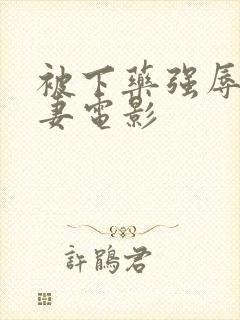 被下藥強辱
妻電影
許鵑君